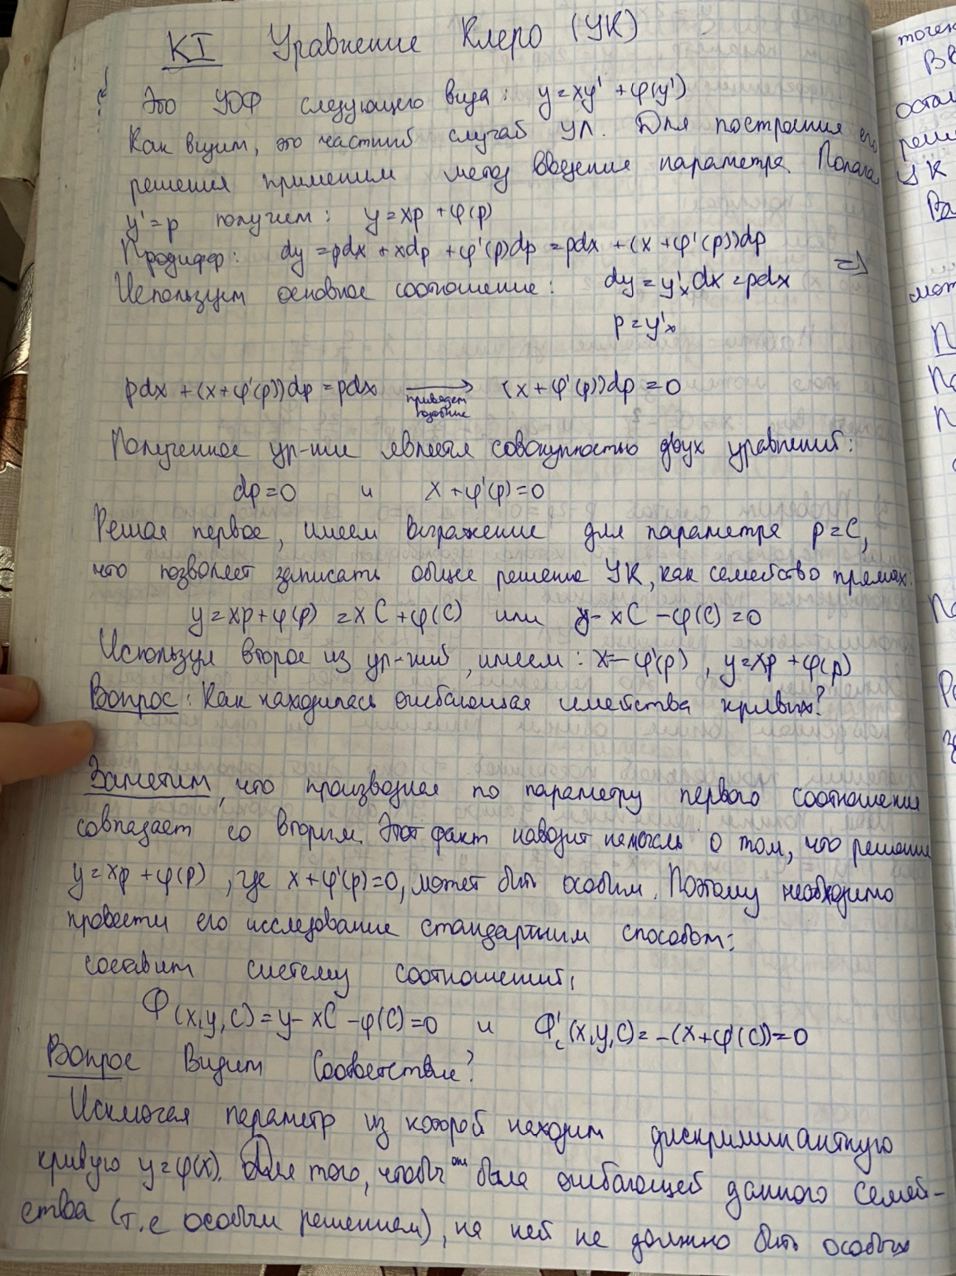 КI Уравнение Клеро (УК)
Это УДФ следующего вида: y=xy' +φ(y')
Как видим, это частный случай УЛ. Для построения его
решения применим метод введения параметра. Полагая
y'=p получим: y=xp+φ(p)
Продифер: dy=pdx+xdp+φ'(p)dp=pdx+(x+φ'(p))dp
Используем основное соотношение: dy=y'ₓdx=pdx =>
p=y'ₓ
pdx+(x+φ'(p))dp=pdx ⟶ (x+φ'(p))dp=0
приведем
подобные
Полученное ур-ние является совокупностью двух уравнений:
dp=0 и x+φ'(p)=0
Решая первое, имеем выражение для параметра p=C,
что позволяет записать общее решение УК, как семейство прямых:
y=xp+φ(p)=xC+φ(C) или y-xC-φ(C)=0
Используя второе из ур-ний, имеем: x=-φ'(p), y=xp+φ(p)
Вопрос: Как находилась огибающая семейства кривых?
Заметим, что производная по параметру первого соотношения
совпадает со вторым. Этот факт наводит на мысль о том, что решение
y=xp+φ(p), где x+φ'(p)=0, может быть особым. Поэтому необходимо
провести его исследование стандартным способом:
составим систему соотношений:
Φ(x,y,C)=y-xC-φ(C)=0 и Φ'c(x,y,C)=-(x+φ'(C))=0
Вопрос Видим Соответствие?
Исключая параметр из которой находим дискриминантную
кривую y=φ(x). Для того, чтобы она была огибающей данного семей-
ства (т.е особым решением), на ней не должно быть особых
точек
остал
реше
УК
мот